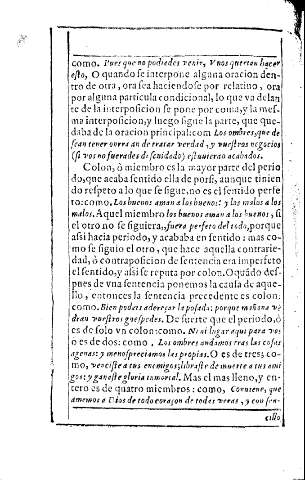 como. Pues que no podiedes venir, Vnos querian hacer
esto, O quando se interpone alguna oracion den-
tro de otra, ora sea haciendose por relatiuo, ora
por alguna particula condicional, lo que va delan
te de la interposicion se pone por coma, y la mes-
ma interposicion, y luego sigue la parte, que que-
daba de la oracion principal: com Los ombres, que de
sean tener onrra an de tratar verdad, y vuestros negocios
(si vos no fuerades descuidado) estuuieran acabados.
Colon, ò miembro es la mayor parte del perio
do, que acaba sentido ella de por si, aunque tinien
do respeto a lo que se sigue, no es el sentido perfe
to: como. Los buenos aman a los buenos: y los malos a los
malos. Aquel miembro los buenos aman a los buenos, si
el otro no se siguiera, fuera perfeto del todo, porque
assi hacia periodo, y acababa en sentido: mas co-
mo se siguio el otro, que hace aquella contrarie-
dad, ò contraposicion de sentencia era imperfeto
el sentido, y assi se reputa por colon. O quãdo des-
pues de vna sentencia ponemos la causa de aque-
llo, entonces la sentencia precedente es colon:
como. Bien podeis aderezar la posada: porque mañana vẽ
dran vuestros guespedes. De suerte que el periodo, ò
es de solo vn colon: como. Ni ai lugar aqui para vos
ò es de dos: como. Los ombres andamos tras las cosas
agenas: y menospreciamos las propias. O es de tres; co-
mo, venciste a tus enemigos; libraste de muerte a tus ami
gos: y ganaste gloria inmortal. Mas el mas lleno, y en-
tero es de quatro miembros: como, Conuiene, que
amemos a Dios de todo coraçon de todas veras, y con sen-
cillo